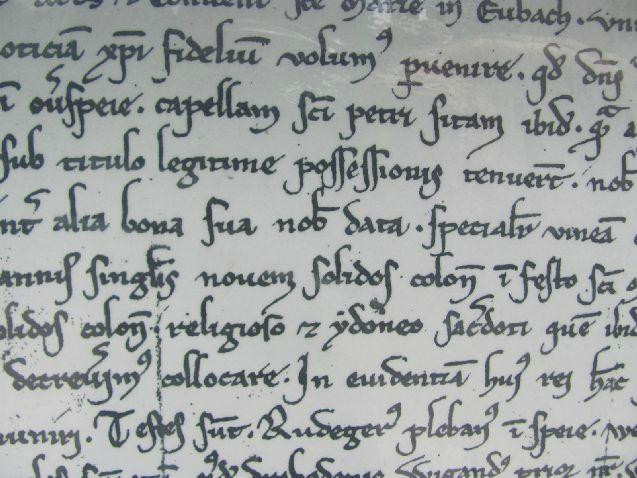 Conuent sce Marie in Eubach. vni
oticiā xpi fideliū volumꝰ ꝑuenire. qd dns
ī ou͛speie. capellam sci petri sitam ibid.
sub titulo legitime possessionis tenuert. nob
int͛ alia bona sua nob data. specialr vineā
annis singlis nouem solidos colon̄ ī festo sci
olidos colon̄. religioso ⁊ ydoneo sac͛doti quē ibid
decreuim͛ꝰ collocare. In euidentiā huiꝰ rei hāc
muniri. Testes sūt. Rudegerꝰ plebanꝰ ī speie. we
Wigandꝰ